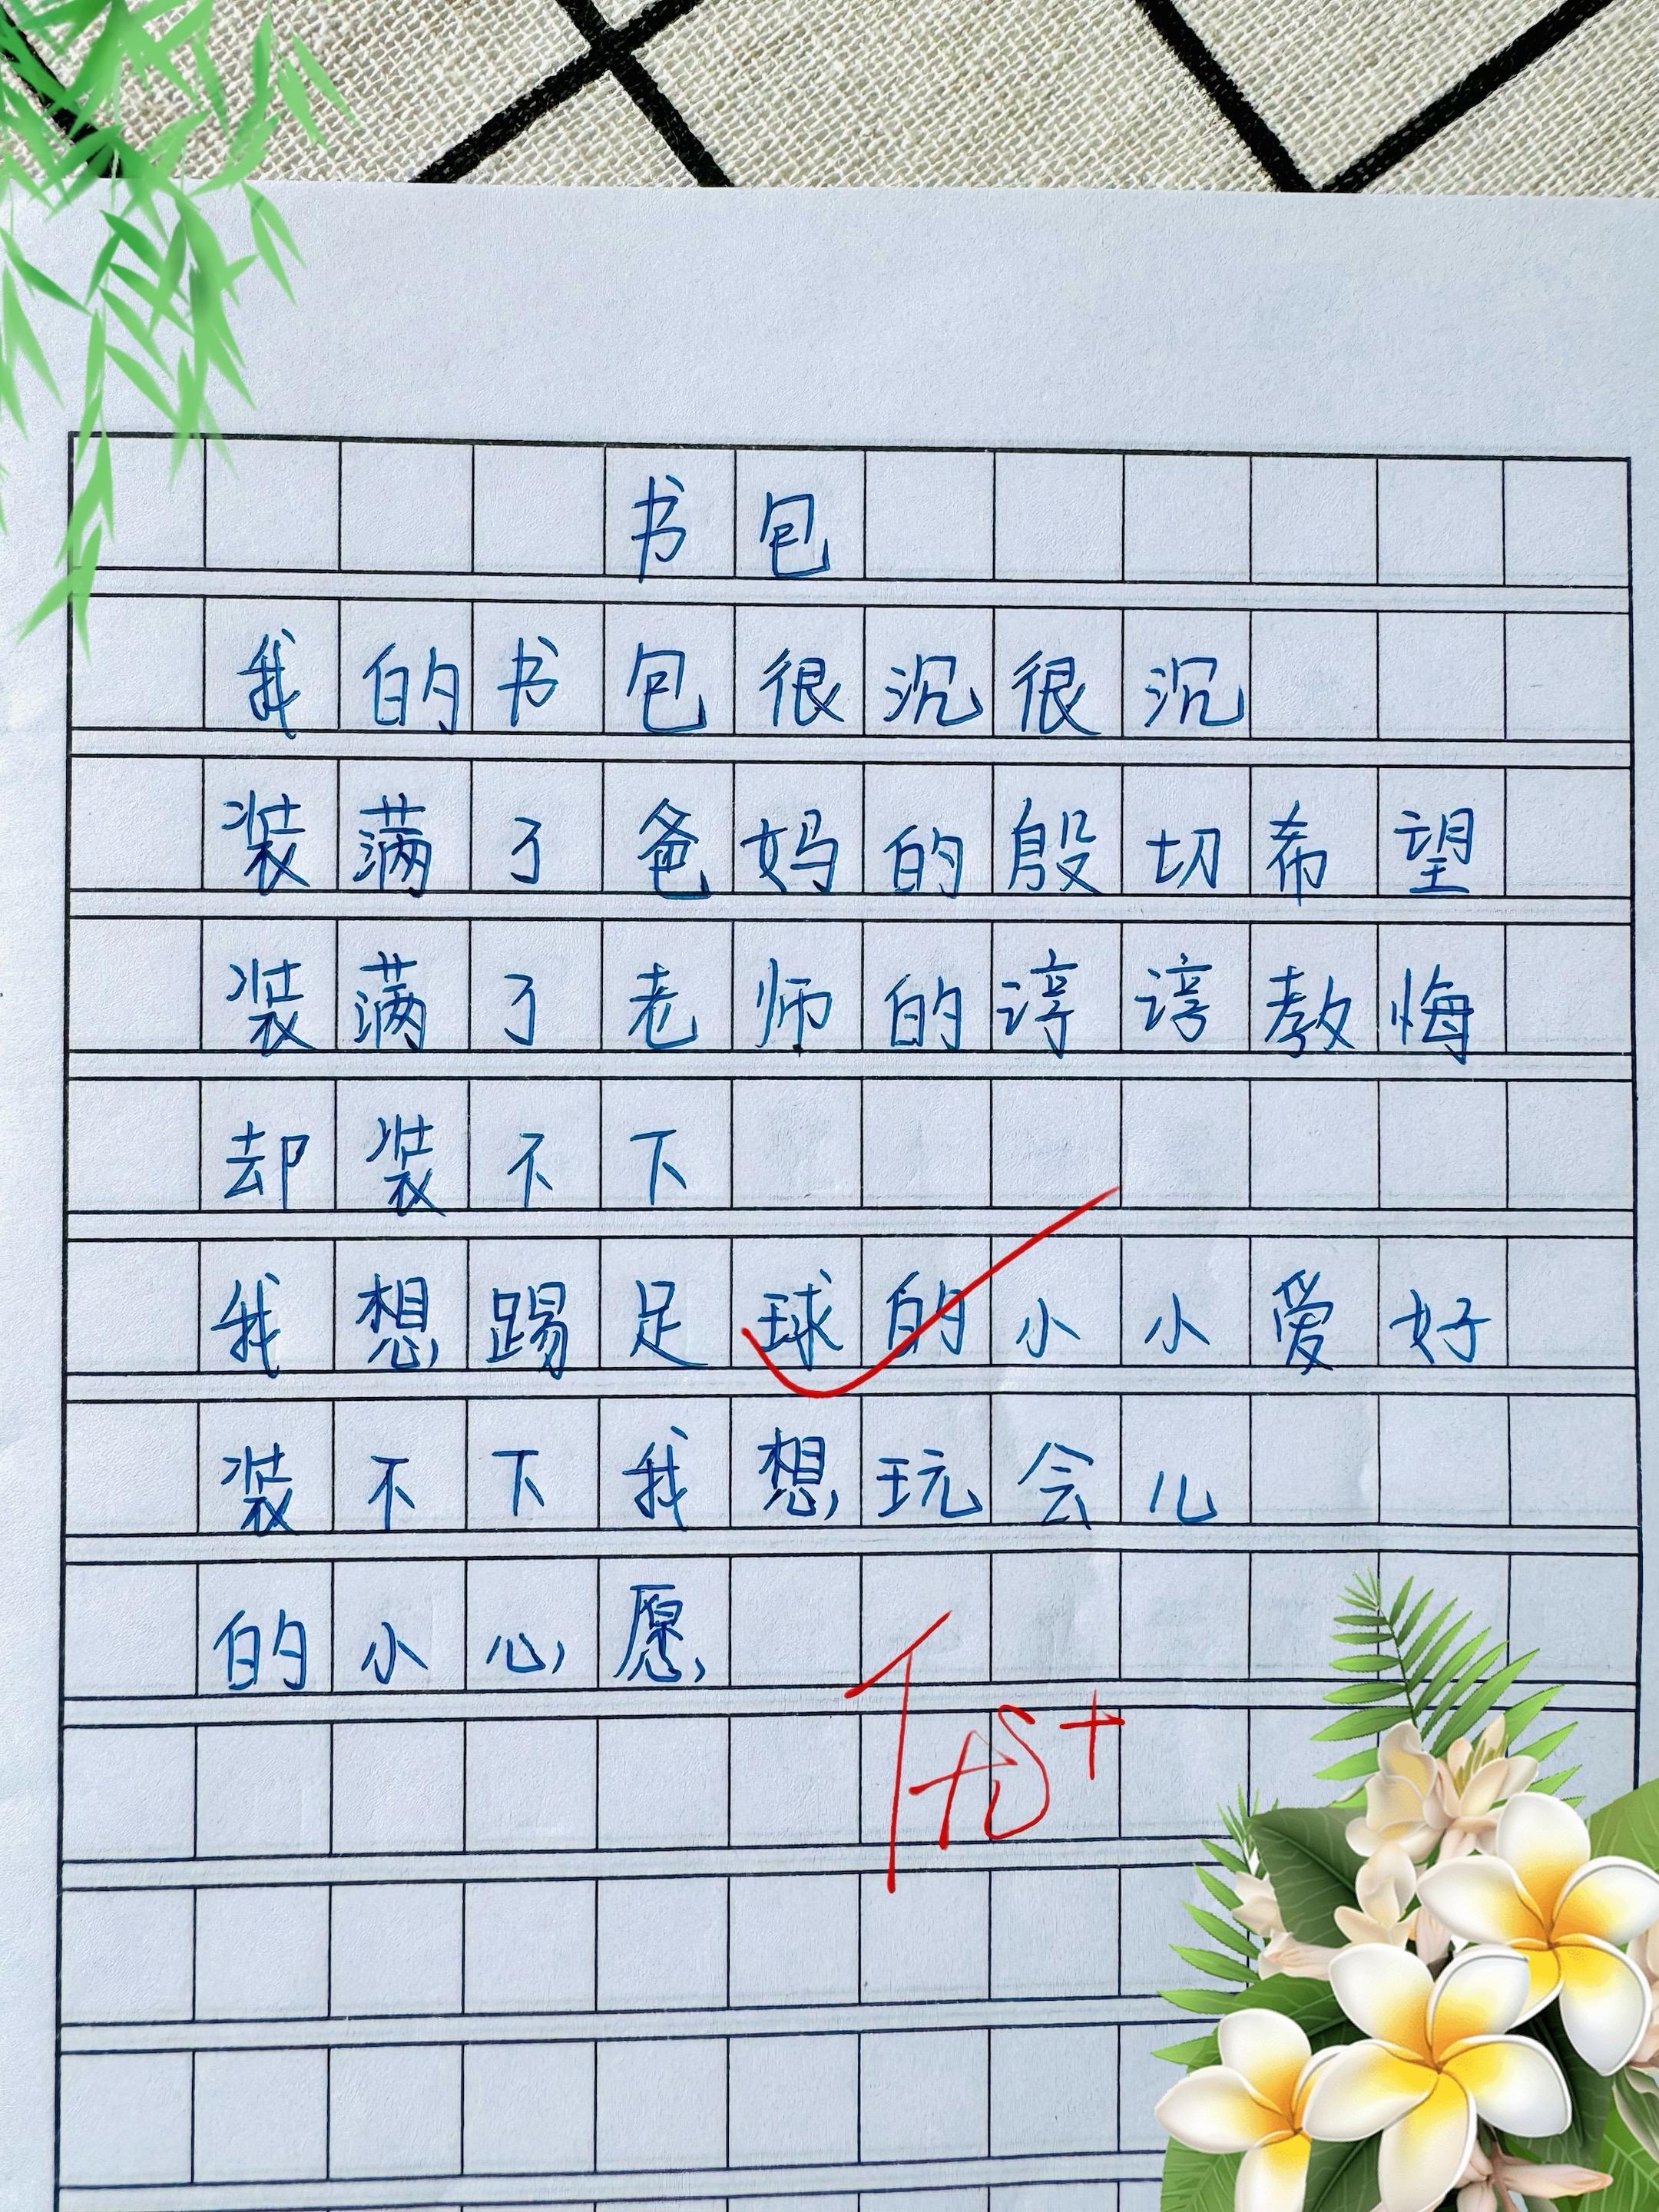 书包
我的书包很沉很沉
装满了爸妈的殷切希望
装满了老师的谆谆教悔
却装不下
我想踢足球的小小爱好
装不下我想玩会儿
的小心愿
优+